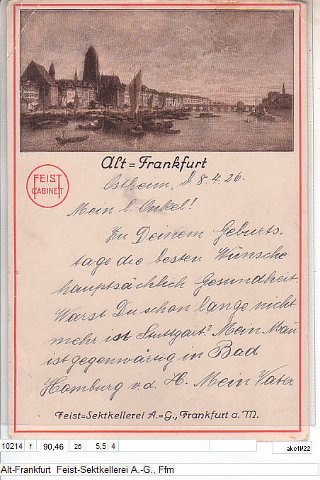 Alt=Frankfurt
FEIST
CABINET
Ostheim, d 8.4.26.
Mein l. Onkel!
Zu Deinem Geburts
tage die besten Wünsche
hauptsächlich Gesundheit.
Warst Du schon lange nicht
mehr in Stuttgart? Mein Mann
ist gegenwärtig in Bad
Homburg v.d. H. Mein Vater
Feist-Sektkellerei A.-G., Frankfurt a. M.
10214 r. 90,46 26 5,5 4
Alt-Frankfurt Feist-Sektkellerei A.-G., Ffm